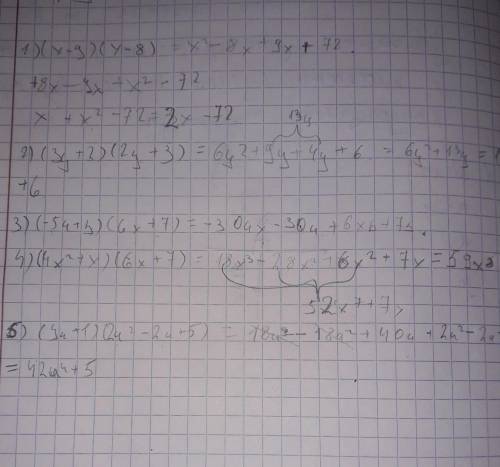 1) (x-9)(x-8) = x²-8x+9x+72.
+8x-9x+x²-72
x+x²-72+2x-72
13y
2) (3y+2)(2y+3) = 6y2+9y+4y+6 = 6y²+13y=
+6
3) (-5a+b)(6x+7) = -30ax-30a+6xb+7b.
4) (4x²+x)(6x+7) = 18x³-28x²+6x²+7x=59x
52x⁷+7
5) (9a+1)(2a²-2a+5) = 18a³-18a²+40a+2a²-2a
=42a⁴+5